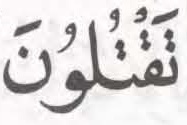 تَقْتُلُونَ